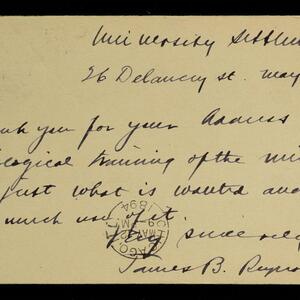 University Settlem
26 Delancey st. May
nk you for your Address
ological training of the mi
just what is wanted and
much use of it.
Very sincerely
James B. Reyno
CAGO
MAY
1894